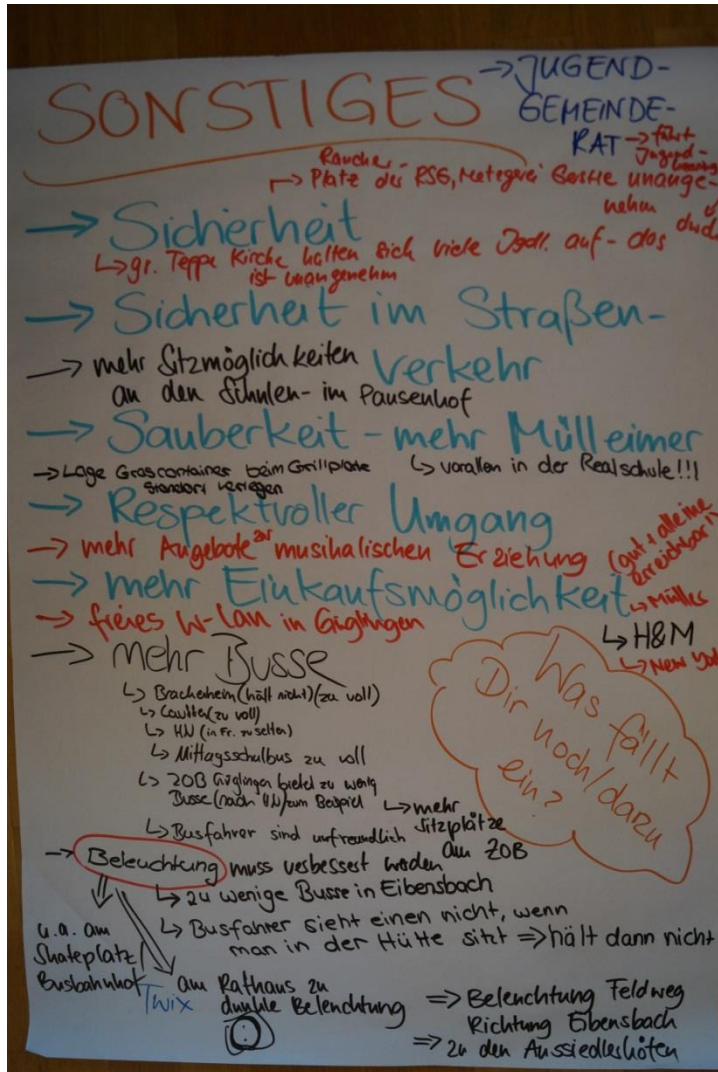 SONSTIGES
→ JUGEND-
GEMEINDE-
RAT → führt
Jugend-
Raucher-
↳ Platz der RSG, Metzgerei unange-
nehm
→ Sicherheit
↳ gr. Treppe Kirche halten sich viele Jgdl. auf - das
ist unangenehm
→ Sicherheit im Straßen-
verkehr
→ mehr Sitzmöglichkeiten
an den Schulen - im Pausenhof
→ Sauberkeit - mehr Mülleimer
→ Lage Grascontainer beim Grillplatz
Standort verlegen
↳ vorallen in der Realschule!!!
→ Respektvoller Umgang
→ mehr Angebote zur musikalischen Erziehung (gut + alleine
erreichbar!)
→ mehr Einkaufsmöglichkeit
↳ Müller
↳ H&M
↳ New Yo
→ freies W-Lan in Güglingen
→ mehr Busse
↳ Brackenheim (hält nicht) (zu voll)
↳ (zu voll)
↳ HN (in Fr. zu selten)
↳ Mittagsschulbus zu voll
↳ ZOB Güglingen bietet zu wenig
Busse (nach HN) zum Beispiel
↳ mehr
Sitzplätze
am ZOB
↳ Busfahrer sind unfreundlich
Was fällt
Dir noch/dazu
ein?
→ Beleuchtung muss verbessert werden
↳ zu wenige Busse in Eibensbach
↳ Busfahrer sieht einen nicht, wenn
man in der Hütte sitzt ⇒ hält dann nicht
u.a. am
Skateplatz/
Busbahnhof
Twix
am Rathaus zu
dunkle Beleuchtung
⇒ Beleuchtung Feldweg
Richtung Eibensbach
⇒ zu den Aussiedlerhöfen